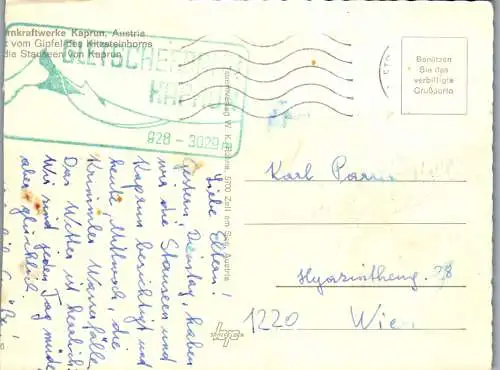 rnkraftwerke Kaprun, Austria
vom Gipfel des Kitzsteinhorns
die Stauseen von Kaprun
GLETSCHERBAHN
KAPRUN
928 - 3029 m
Benützen
Sie das
verbilligte
Grußporto
Liebe Eltern!
Gestern, Dienstag, haben
wir die Stauseen und
Kaprun besichtigt und
heute, Mittwoch, die
Krimmler Wasserfälle.
Das Wetter ist herrlich
Wir sind jeden Tag müde
aber glücklich.
5700 Zell am See, Austria
Karl
Hyazintheng. 28
1220 Wien